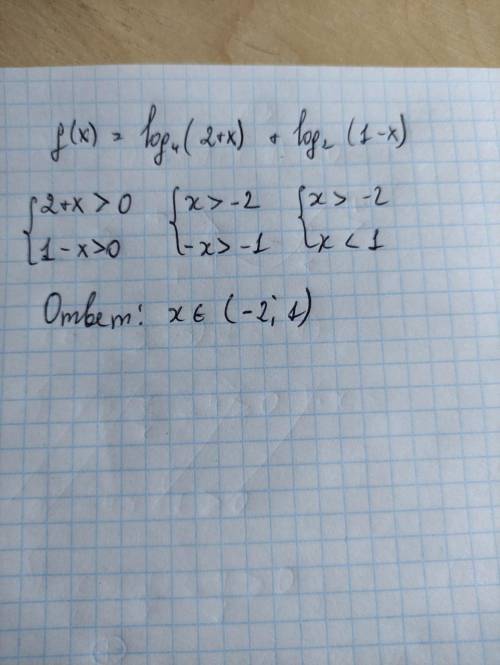 f(x) = log₄(2+x) + log₂(1-x)
{2+x>0 {x>-2 {x>-2
{1-x>0 {-x>-1 {x<1
Ответ: x ∈ (-2; 1)